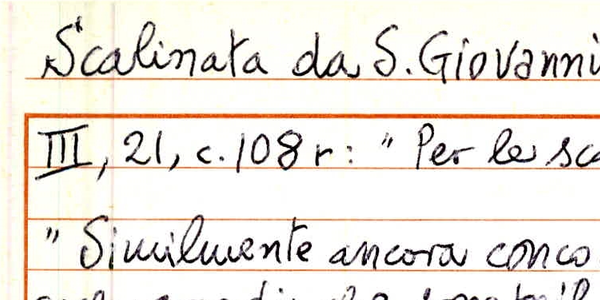 Scalinata da S. Giovanni
III, 21, c. 108 r: " Per le sca
" Similmente ancora conco